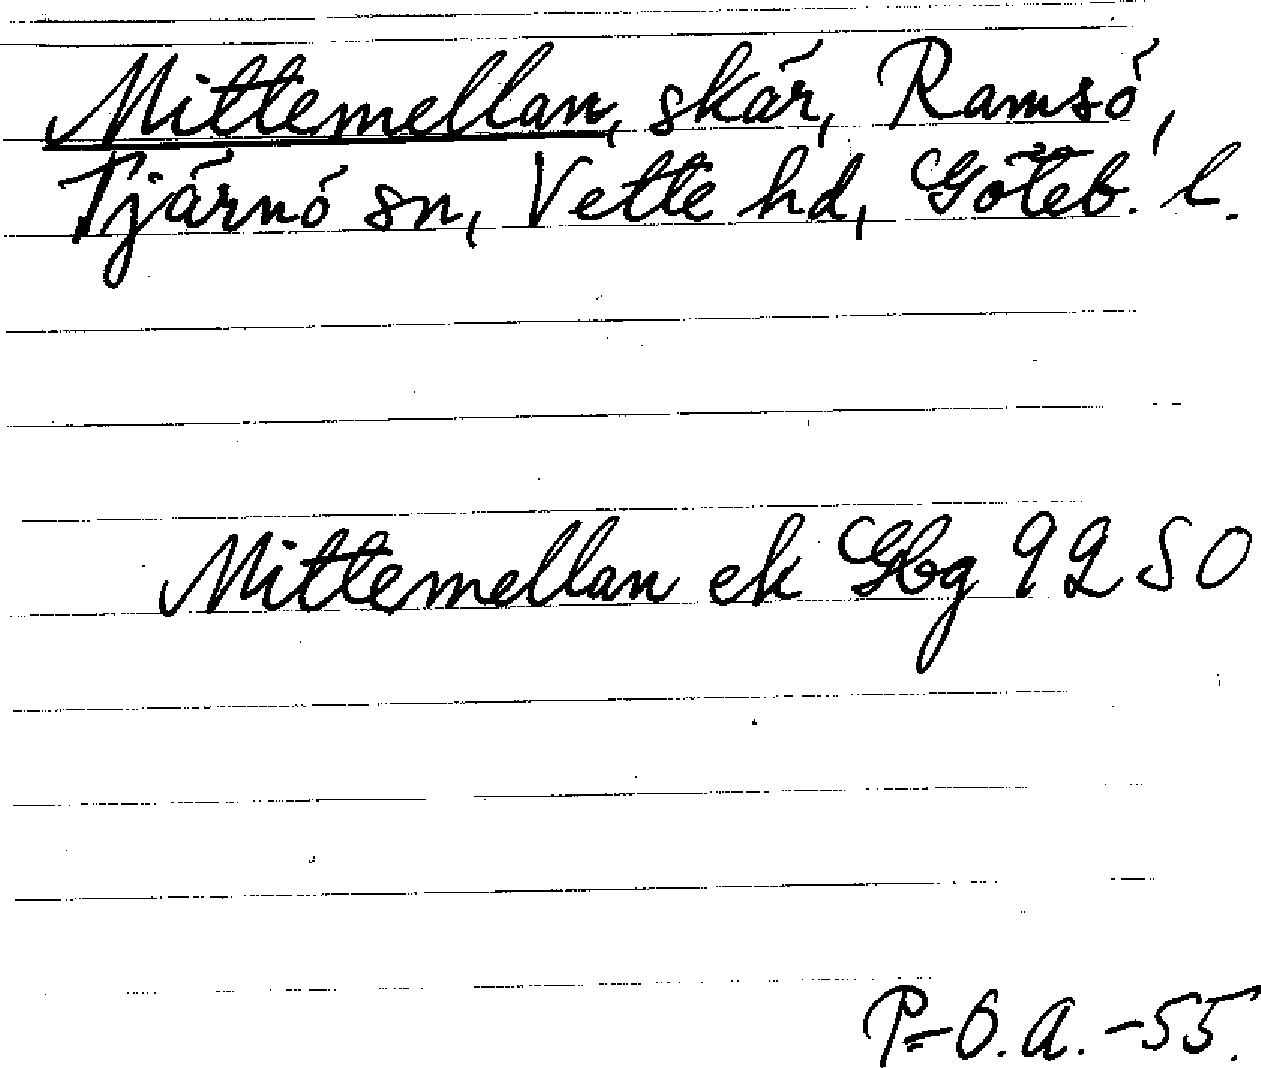 Mittemellan, skär, Ramsö,
Tjärnö sn, Vette hd, Göteb. l.
Mittemellan ek Gbg 9250
P-O.A. -55.